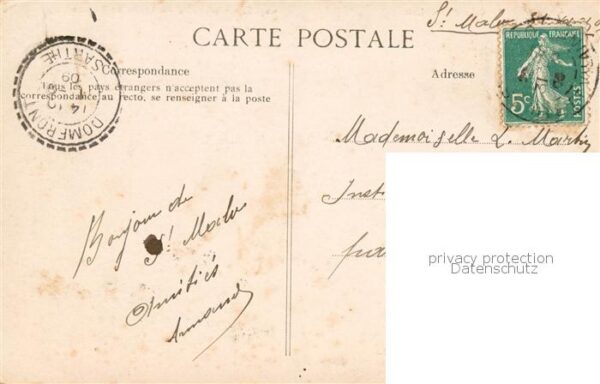 St Malo
CARTE POSTALE
RÉPUBLIQUE FRANÇAISE
5c
POSTES
Correspondance
Tous les pays étrangers n'acceptent pas la
correspondance au recto, se renseigner à la poste
Adresse
DOMFRONT
SARTHE
14
09
Mademoiselle L. Martin
Bonjour de
St Malo
Amitiés
Armand
privacy protection
Datenschutz